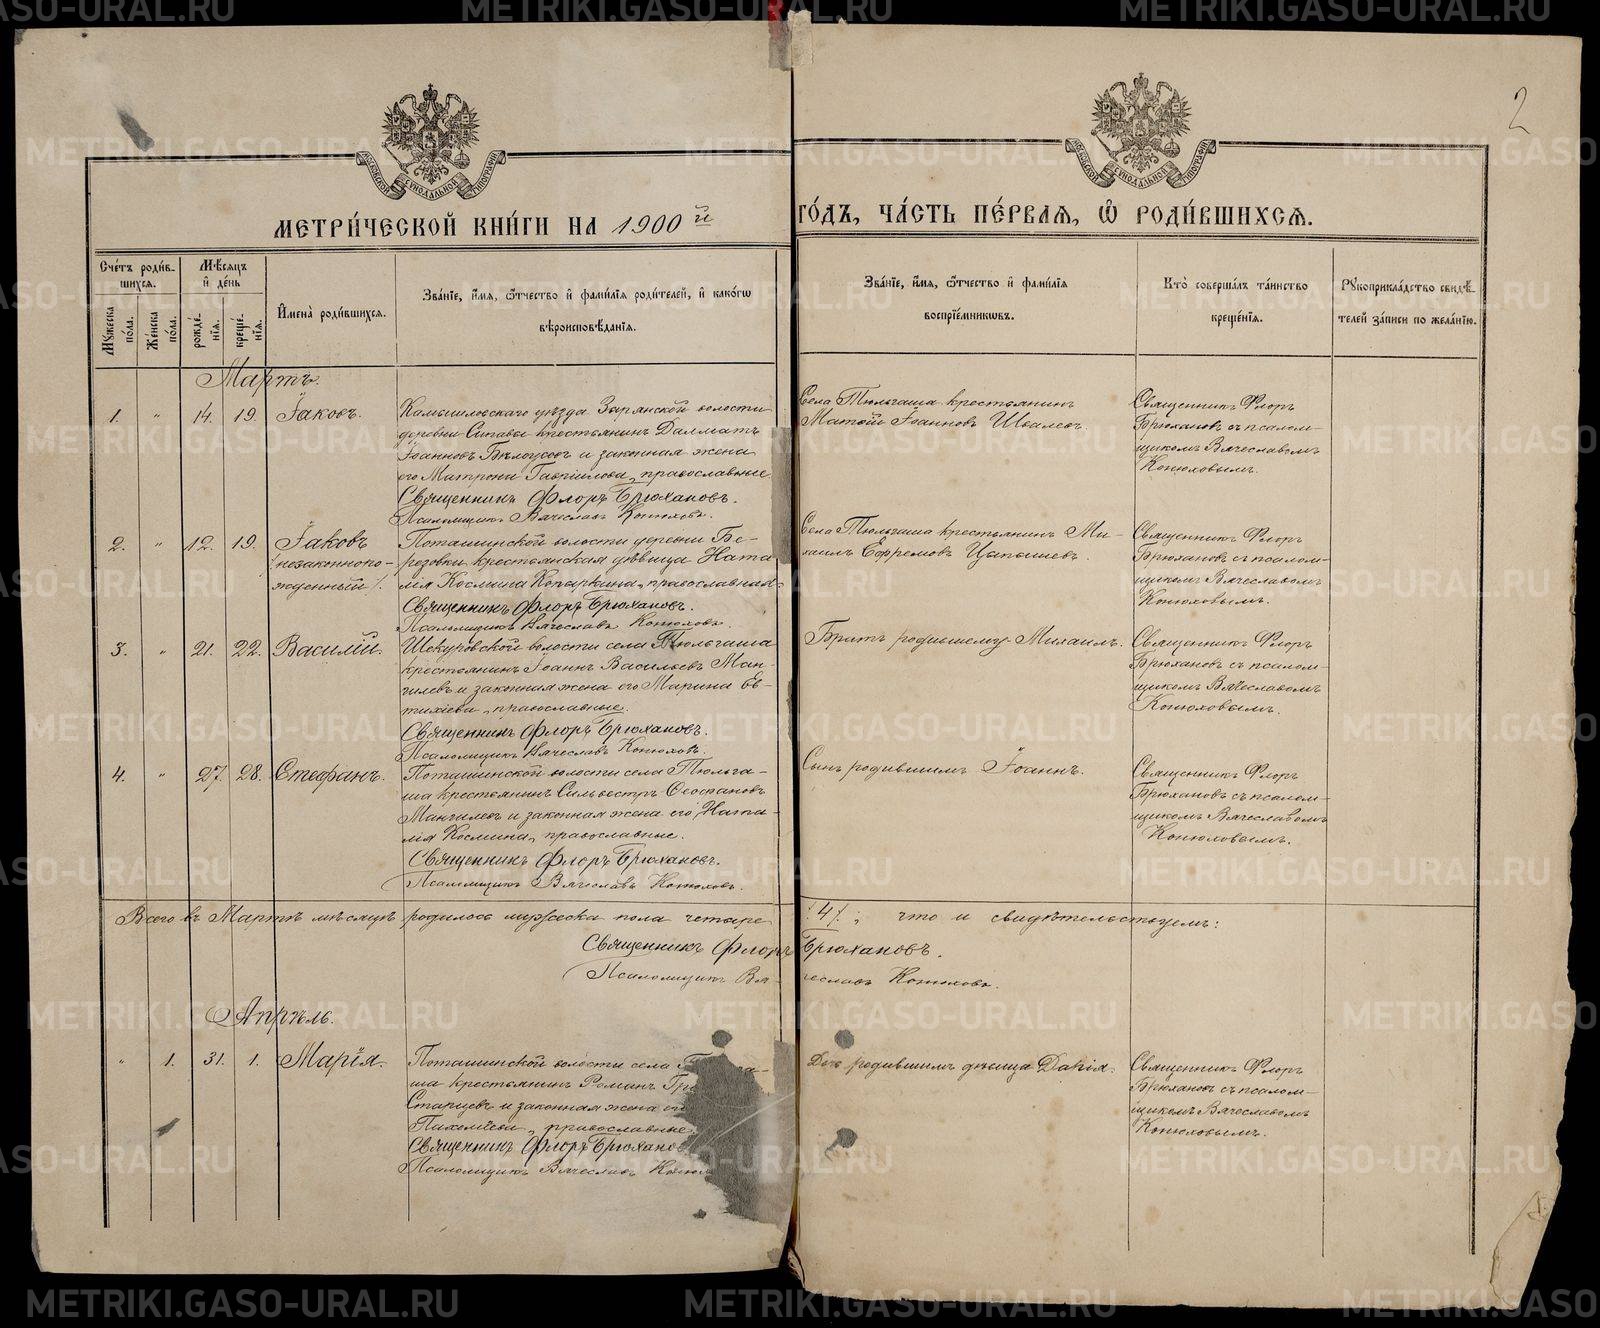 2
МЕТРИ́ЧЕСКОЙ КНИ́ГИ НА 1900й ГО́ДЪ, ЧА́СТЬ ПЕ́РВАЯ, Ѿ РОДИ́ВШИХСЯ.
Сче́тъ роди́вшихся.
Мѣ́сяцъ и де́нь
Му́жеска по́ла.
Же́нска по́ла.
рожде́нія.
креще́нія.
Имена̀ роди́вшихся.
Зва́ніе, и́мя, ѻ́тчество и фами́лія роди́телей, и како́гѡ
вѣроисповѣ́данія.
Зва́ніе, и́мя, ѻ́тчество и фами́лія
воспріе́мникѡвъ.
Кто̀ соверша́лъ та́инство
креще́нія.
Рукоприкла́дство свидѣ́-
телей за́писи по жела́нію.
Мартъ.
1. " 14. 19. Іаковъ.
Камышловскаго уѣзда Зарянской волости
деревни крестьянинъ Далматъ
Іоанновъ Бѣлоусовъ и законная жена
его Матрона Гавріилова, православные
Священникъ Флоръ Брюхановъ.
Псаломщикъ Вячеславъ Конюховъ.
Села Тюльгаша крестьянинъ
Матѳій Іоанновъ
Священникъ Флоръ
Брюхановъ съ псалом-
щикомъ Вячеславомъ
Конюховымъ.
2. " 12. 19. Іаковъ
(незаконноро-
жденный).
Поташинской волости деревни Бе-
резовки крестьянская дѣвица Ната
лія Космина православная.
Священникъ Флоръ Брюхановъ.
Псаломщикъ Вячеславъ Конюховъ.
Села Тюльгаша крестьянинъ Ми-
хаилъ Ефремовъ
Священникъ Флоръ
Брюхановъ съ псалом-
щикомъ Вячеславомъ
Конюховымъ.
3. " 21. 22. Василій.
Шокуровской волости села Тюльгаша
крестьянинъ Іоаннъ Васильевъ Ман-
гилевъ и законная жена его Марина Ев-
тихіева, православные.
Священникъ Флоръ Брюхановъ.
Псаломщикъ Вячеславъ Конюховъ.
Братъ родившемуся Михаилъ.
Священникъ Флоръ
Брюхановъ съ псалом-
щикомъ Вячеславомъ
Конюховымъ.
4. " 27. 28. Стефанъ.
Поташинской волости села Тюльга-
ша крестьянинъ Сильвестръ Ѳеофановъ
Мангилевъ и законная жена его Ната-
лія Космина, православные.
Священникъ Флоръ Брюхановъ.
Псаломщикъ Вячеславъ Конюховъ.
Сынъ родившимъ Іоаннъ.
Священникъ Флоръ
Брюхановъ съ псалом-
щикомъ Вячеславомъ
Конюховымъ.
Всего въ Мартѣ мѣсяцѣ родилось мужеска пола четыре (4); что и свидѣтельствуемъ:
Священникъ Флоръ Брюхановъ.
Псаломщикъ Вячеславъ Конюховъ.
Апрѣль.
" 1. 31. 1. Марія.
Поташинской волости села
ша крестьянинъ Романъ
Старцевъ и законная жена его
православные.
Священникъ Флоръ Брюханов
Псаломщикъ Вячеславъ Конюх
Дочь родившимъ дѣвица Дарія.
Священникъ Флоръ
Брюхановъ съ псалом-
щикомъ Вячеславомъ
Конюховымъ.
METRIKI.GASO-URAL.RU